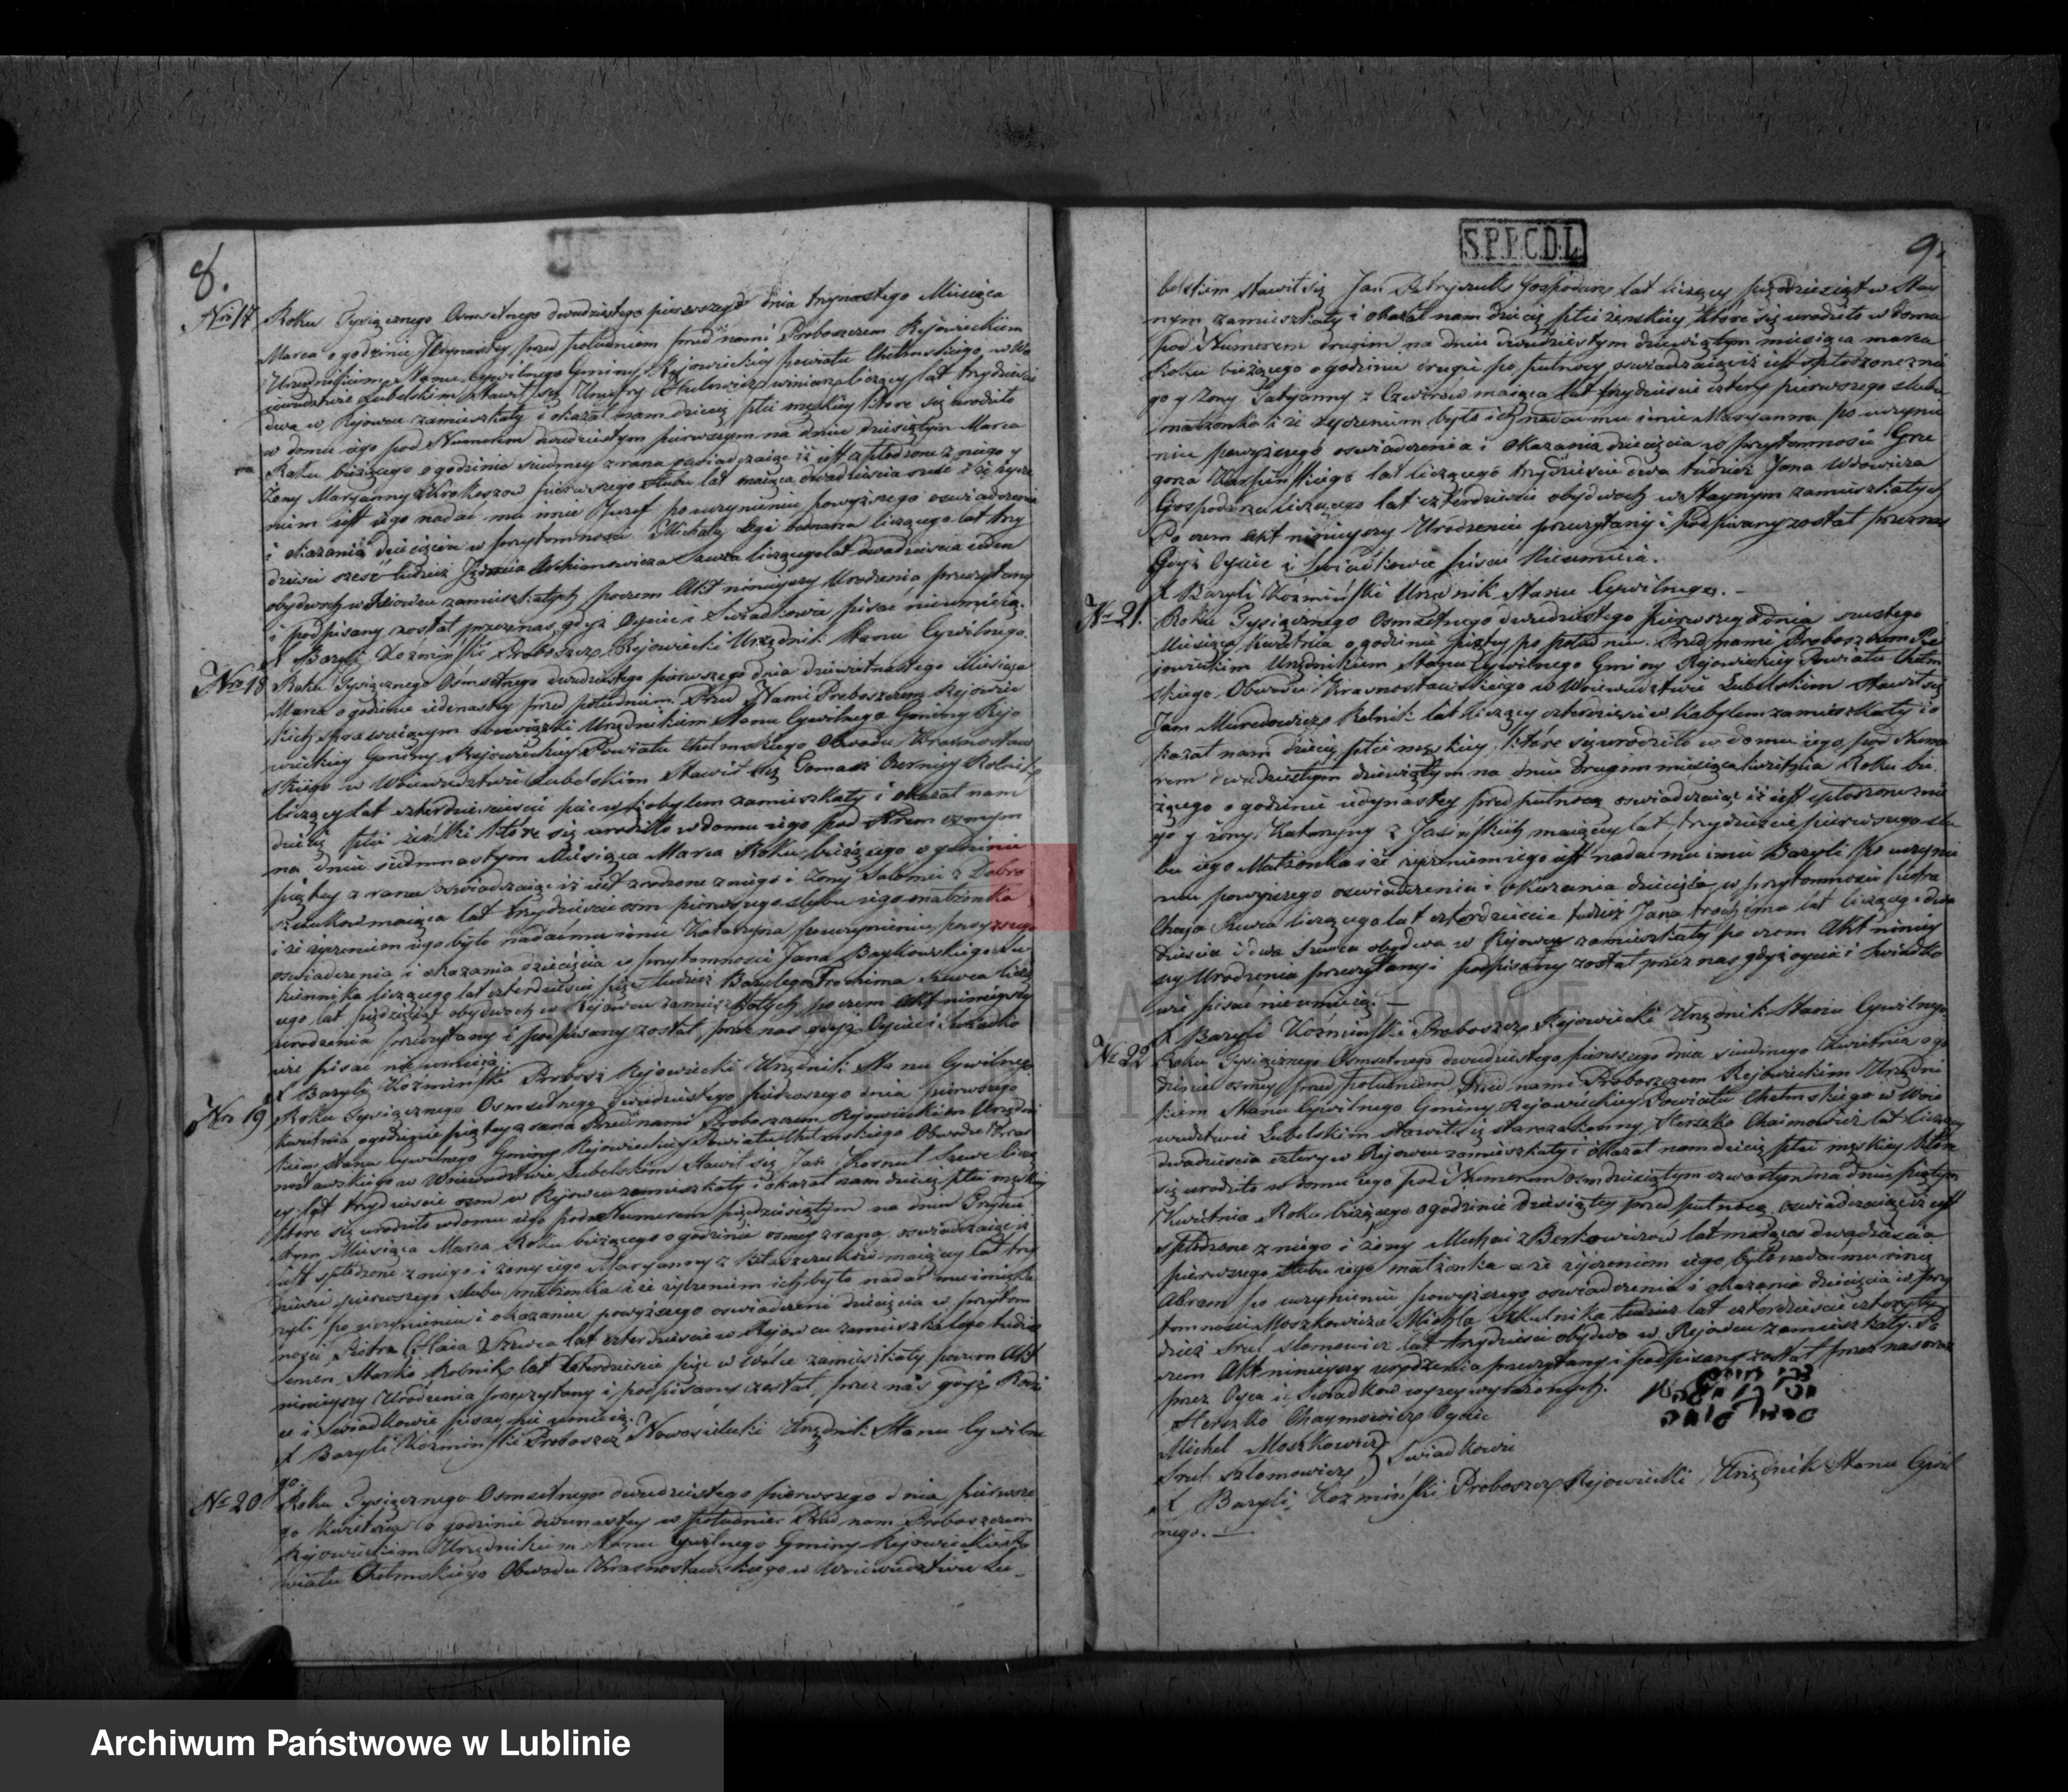 8.
Nro 17 Roku Tysiącznego Osmsetnego dwudziestego pierwszego dnia trzynastego Miesiąca
Marca o godzinie Jedynastey przed południem przed nami Proboszczem Rejowieckim
Urzędnikiem Stanu Cywilnego Gminy Rejowieckiey powiatu Chełmskiego w Wo
iewudztwie Lubelskim stawił się liczący lat trzydzieści
dwa w Rejowcu zamieszkały i okazał nam dziecię płci męskiey które się urodziło
w domu iego pod Numerem dwudziestym pierwszym na dniu dziesiątym Marca
Roku bieżącego o godzinie siudmey zrana oswiadczaiąc iż iest spłodzone z niego y
Żony Maryanny z Krokoszow pierwszego slubu lat maiąca dwadzieścia sześć i że życze
niem iest iego nadać mu imie Juzef po uczynieniu powyższego oswiadczenia
i okazaniu dziecięcia w przytomności Michała bednarza liczącego lat trzy
dzieści sześć tudzież liczącego lat dwadzieścia ieden
obydwoch w Rejowcu zamieszkałych poczem Akt ninieyszy Urodzenia przeczytany
i podpisany został przez nas gdyż Oyciec i Swiadkowie pisać nieumieią.
X Bazyli Kozmiński Proboszcz Rejowiecki Urzędnik Stanu Cywilnego.
Nro 18 Roku Tysiącznego Osmsetnego dwudziestego pierwszego dnia dziewietnastego Miesiąca
Marca o godzinie iedenastey przed południem Przed Nami Proboszczem Rejowie
ckich sprawuiącym obowiązki Urzędnikiem Stanu Cywilnego Gminy Rejo
wieckiey Gminy Rejowieckiey Powiatu Chełmskiego Obwodu Krasnostaw
skiego w Woiewudztwie Lubelskim Stawił się Rolnik
liczący lat czterdzieści pięć w Kobylem zamieszkały i okazał nam
dziecię płci które się urodziło w domu iego pod Nrem osmym
na dniu siedmnastym Miesiąca Marca Roku bieżącego o godzinie
piątey z rana oswiadczaiąc iż iest zrodzone z niego i Żony Salomei z Dobro
maiąca lat trzydzieści osm pierwszego slubu iego małżonka
i że życzeniem iego było nadać mu imie Katarzyna po uczynieniu powyższego
oswiadczenia i okazania dziecięcia w przytomności Jana Baykowskiego
liczącego lat czterdzieści pięć tudzież Bazylego Trochima Szewca licz
cego lat pięcdziesiąt obydwoch w Rejowcu zamieszkałych po czem Akt ninieyszy
urodzenia przeczytany i podpisany został przez nas gdyż Oyciec i Swiadko
wie pisać nieumieią.
X Bazyli Kozmiński Probosz Rejowiecki Urzędnik Stanu Cywilnego
Nro 19 Roku Tysiącznego Osmsetnego dwudziestego pierwszego dnia pierwszego
kwietnia o godzinie piątey z rana Przed nami Proboszczem Rejowieckim Urzędni
kiem Stanu Cywilnego Gminy Rejowieckiey Powiatu Chełmskiego Obwodu Kras
nostawskiego w Woiewudztwie Lubelskim Stawił się Jan Szewc licz
cy lat trzydzieście osm w Rejowcu zamieszkały i okazał nam dziecię płci męskiey
które się urodziło w domu iego pod Numerem pięćdziesiątym na dniu
Miesiąca Marca Roku bieżącego o godzinie osmey z rana oswiadczaiąc iż
iest spłodzone z niego i żony iego Maryanny z maiącey lat trzy
dzieści pierwszego slubu małżonka i że życzeniem ich było nadać mu imie Ba
zyli po uczynieniu i okazaniu powyższego oswiadczenia dziecięcia w przytom
ności Piotra Szewca lat czterdzieście w Rejowcu zamieszkałego tudzież
Semen Rolnik lat czterdzieście pięć w Wólce zamieszkały poczem Akt
ninieyszy Urodzenia przeczytany i podpisany został przez nas gdyż
i Swiadkowie pisać nie umieią.
X Bazyli Kozmiński Proboszcz Urzędnik Stanu Cywilne
go.
Nro 20 Roku Tysiącznego Osmsetnego dwudziestego pierwszego dnia pierwsze
go Kwietnia o godzinie dwunastey w południe Przed nam Proboszczem
Rejowieckim Urzędnikiem Stanu Cywilnego Gminy Rejowieckiey Po
wiatu Chełmskiego Obwodu Krasnostawskiego w Woiewudztwie Lu-
S.P.P.C.D.L
9.
belskiem stawił się Jan Petryszuk Gospodarz lat liczący pięćdziesiąt w Stay
nym zamieszkały i okazał nam dziecię płci żenskiey które się urodziło w domu
pod Numerem drugim na dniu dwudziestym dziewiątym miesiąca marca
Roku bieżącego o godzinie drugiey po pułnocy oswiadczaiąc iż iest spłodzone z nie
go y Żony Tatyanny z maiąca lat trzydzieście cztery pierwszego slubu
małżonka i że życzeniem było ich nadać mu imie Maryanna po uczynie
niu powyższego oswiadczenia i okazania dziecięcia w przytomności Grze
gorza Karpińskiego lat liczącego trzydzieście dwa tudzież Jana Wdowicza
Gospodarza liczącego lat czterdzieście obydwoch w Staynym zamieszkałych
Po czem Akt ninieyszy Urodzenia przeczytany i Podpisany został przez nas
Gdyż Oyciec i Swiadkowie pisać Nieumieią.
X Bazyli Kozmiński Urzędnik Stanu Cywilnego. –
Nro 21. Roku Tysiącznego Osmsetnego dwudziestego pierwszego dnia szustego
Miesiąca Kwietnia o godzinie piątey po południu. Przed nami Proboszczem Re
jowieckim Urzędnikiem Stanu Cywilnego Gminy Rejowieckiey Powiatu Chełm
skiego Obwodu Krasnostawskiego w Woiewudztwie Lubelskiem stawił się
Jan Rolnik lat liczący czterdzieści w Kobylem zamieszkały i o
kazał nam dziecię płci męskiey które się urodziło w domu iego pod Nume
rem dwudziestym dziewiątym na dniu drugim miesiąca kwietnia Roku bie
żącego o godzinie iedynastey przed pułnocą oswiadczaiąc iż iest spłodzone z nie
go y żony Katarzyny z Jasińskich maiącey lat trzydzieście pierwszego slu
bu iego Małżonka i że życzeniem iego iest nadać mu imie Bazyli, po uczynie
niu powyższego oswiadczenia i okazania dziecięcia w przytomności Piotra
Szewca liczącego lat czterdzieście tudzież Jana Trochima lat liczącego dwa
dzieścia i dwa Szewca obydwa w Rejowcu zamieszkały po czem Akt niniey
szy Urodzenia przeczytany i podpisany został przez nas gdyż oyciec i Swiadko
wie pisać nie umieią. –
X Bazyli Kozmiński Proboszcz Rejowiecki Urzędnik Stanu Cywilnego
Nro 22 Roku Tysiącznego Osmsetnego dwudziestego pierwszego dnia siudmego Kwietnia o go
dzinie osmey przed południem Przed nami Proboszczem Rejowieckim Urzędni
kiem Stanu Cywilnego Gminy Rejowieckiey Powiatu Chełmskiego w Woie
wudztwie Lubelskim stawił się starozakonny Herszko Chaimowicz lat liczący
dwadzieścia cztery w Rejowcu zamieszkały i okazał nam dziecię płci męskiey które
się urodziło w domu iego pod Numerem osmdziesiątym czwartym na dniu piątym
Kwietnia Roku bieżącego o godzinie dziesiątey przed pułnocą oswiadczaiąc iż iest
spłodzone z niego i żony z Berkowiczow lat maiąca dwadzieścia
pierwszego slubu iego małżonka a że życzeniem iego było nadać mu imie
Abram po uczynieniu powyższego oswiadczenia i okazania dziecięcia w przy
tomności Moszkowicza Michla Szkulnika tudzież lat czterdzieście cztery tu
dzież Srul Slomowicz lat trzydzieści obydwa w Rejowcu zamieszkały. Po
czem Akt ninieyszy urodzenia przeczytany i podpisany został przez nas oraz
przez Oyca i Swiadkow wyżey wyrażonych.
Herszko Chaymowicz Oyciec
Michel Moszkowicz } Swiadkowie
Srul Szlomowicz
X Bazyli Kozmiński Proboszcz Rejowiecki Urzędnik Stanu Cywil
nego. —
Archiwum Państwowe w Lublinie